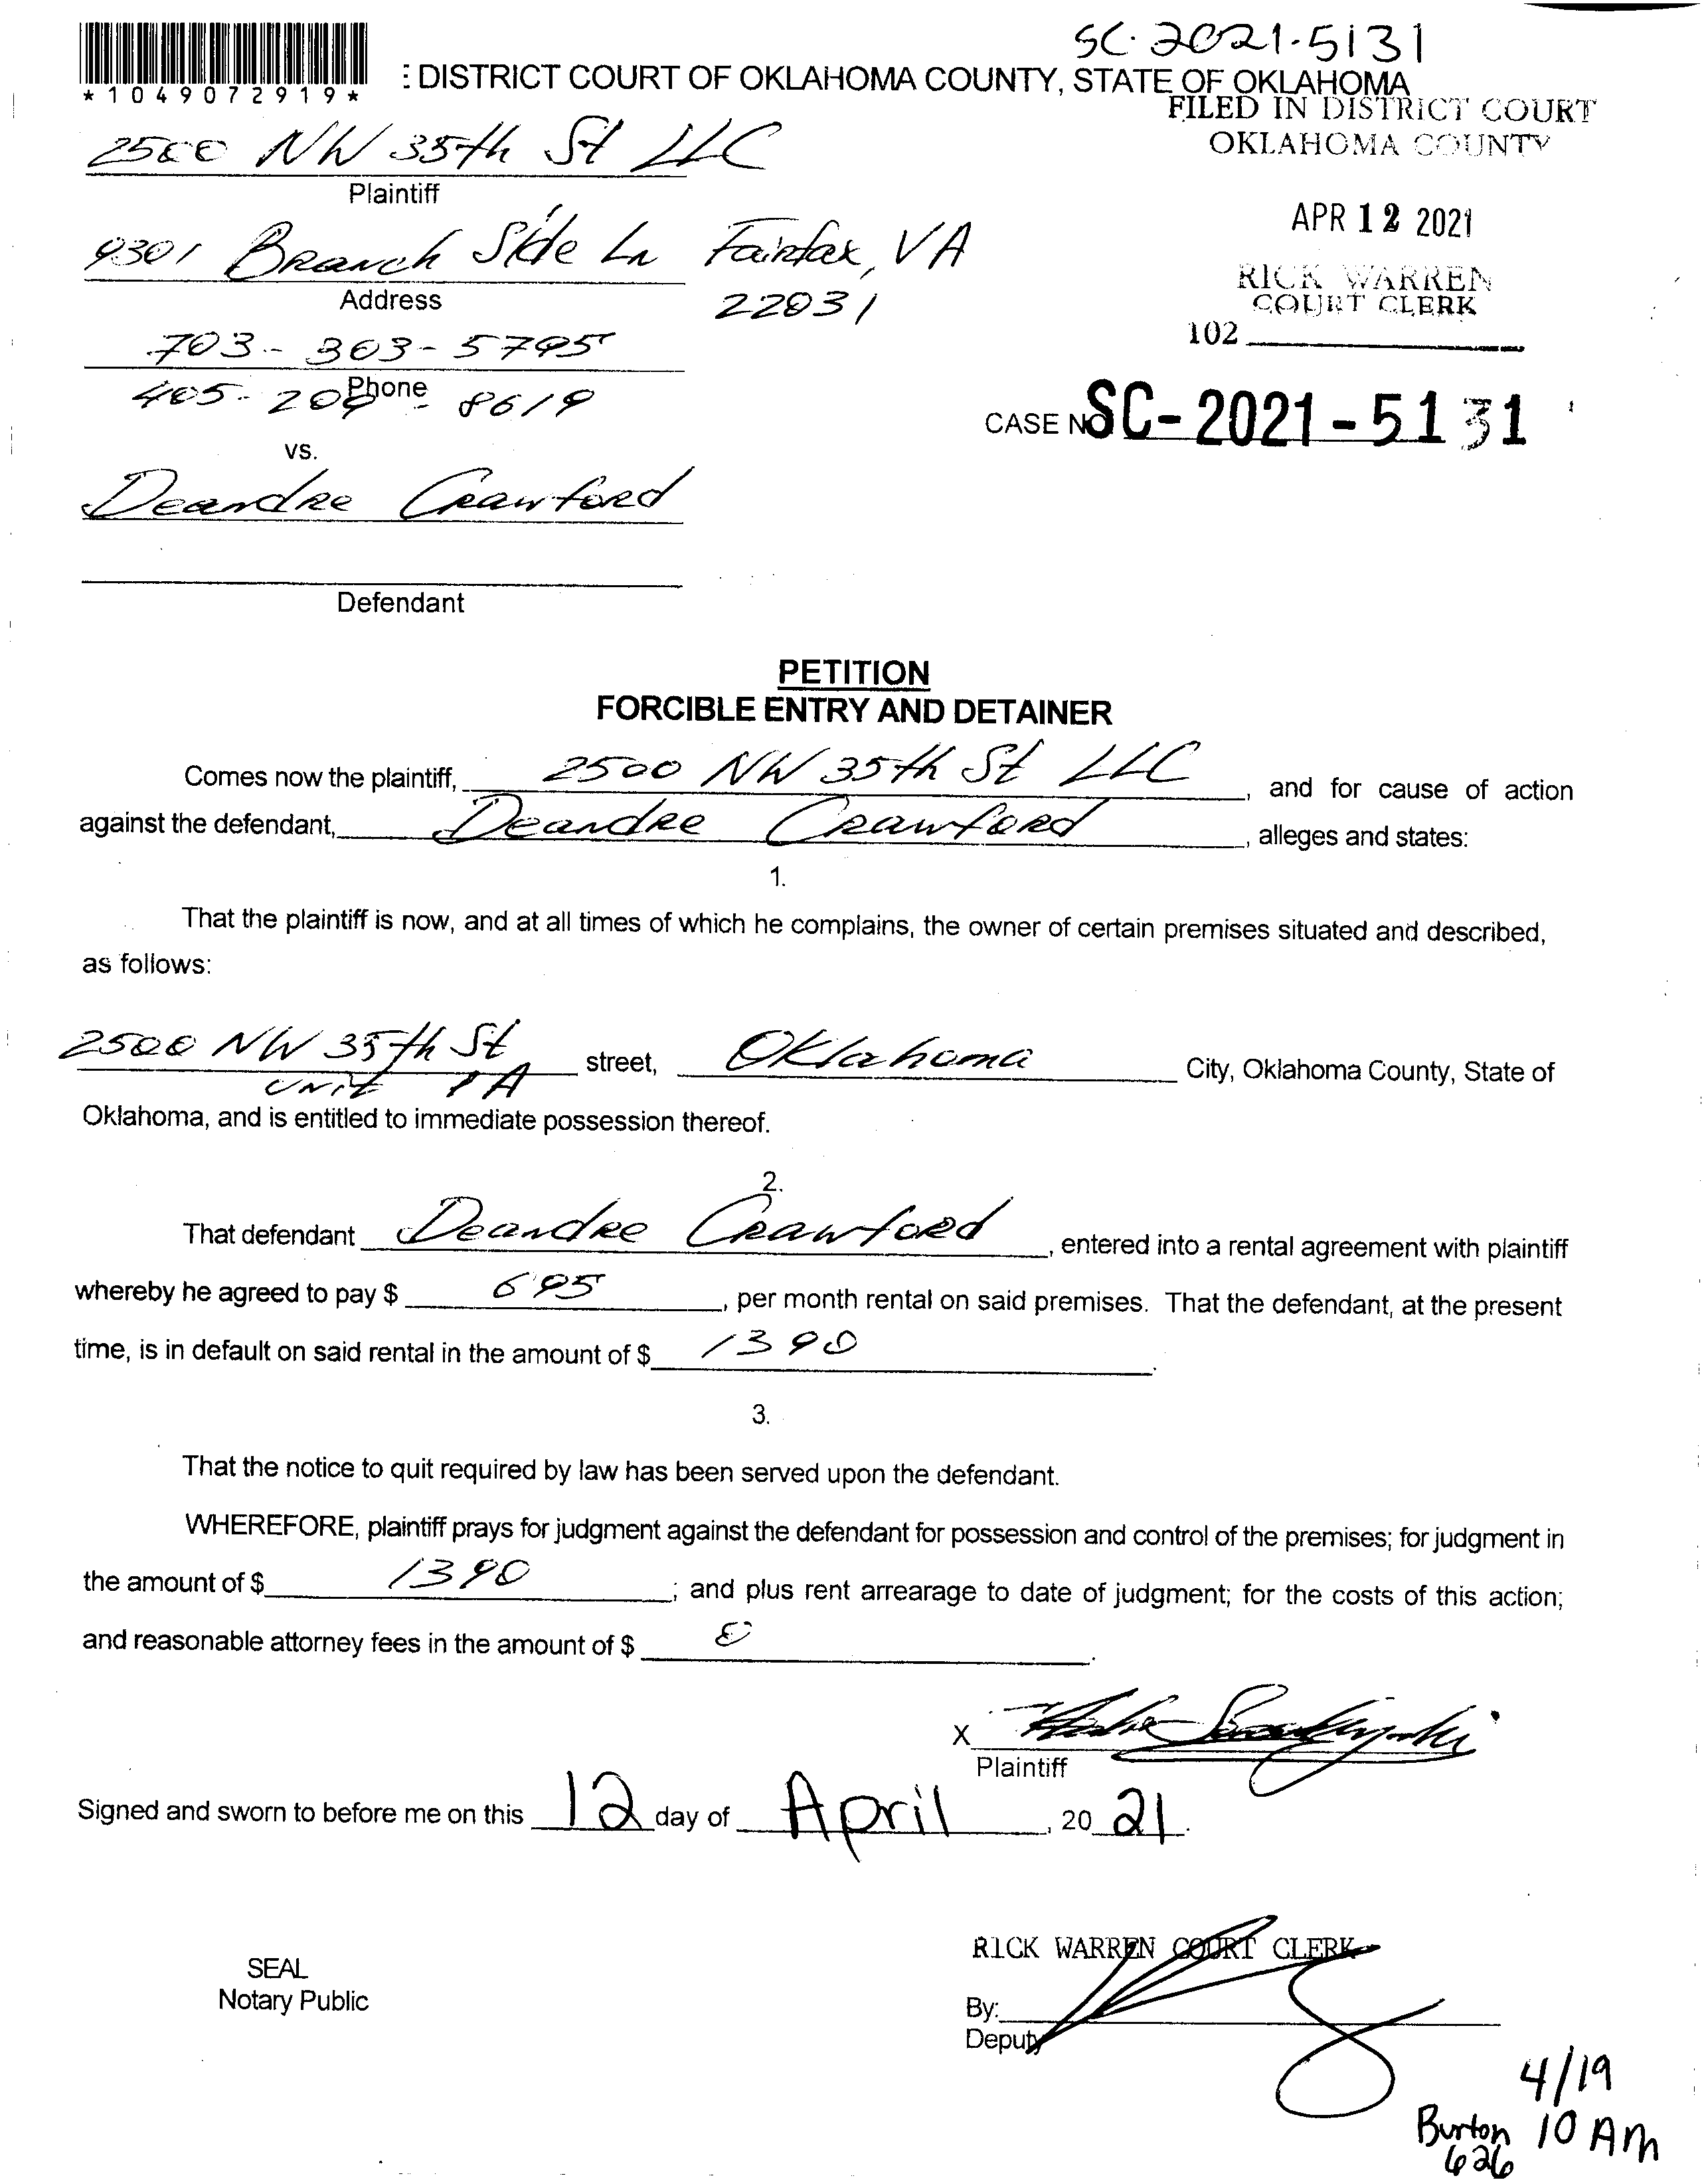 SC-2021-5131
*1049072919*
: DISTRICT COURT OF OKLAHOMA COUNTY, STATE OF OKLAHOMA
FILED IN DISTRICT COURT
OKLAHOMA COUNTY
2500 NW 35th St LLC
Plaintiff
APR 12 2021
9301 Branch Side Ln Fairfax, VA
22031
Address
RICK WARREN
COURT CLERK
102
703-303-5795
Phone
405-209-8619
CASE NO SC-2021-5131
vs.
Deandre Crawford
Defendant
PETITION
FORCIBLE ENTRY AND DETAINER
Comes now the plaintiff, 2500 NW 35th St LLC, and for cause of action
against the defendant, Deandre Crawford, alleges and states:
1.
That the plaintiff is now, and at all times of which he complains, the owner of certain premises situated and described,
as follows:
2500 NW 35th St street, Oklahoma City, Oklahoma County, State of
Unit A
Oklahoma, and is entitled to immediate possession thereof.
2.
That defendant Deandre Crawford, entered into a rental agreement with plaintiff
whereby he agreed to pay $ 695, per month rental on said premises. That the defendant, at the present
time, is in default on said rental in the amount of $ 1390.
3.
That the notice to quit required by law has been served upon the defendant.
WHEREFORE, plaintiff prays for judgment against the defendant for possession and control of the premises; for judgment in
the amount of $ 1390; and plus rent arrearage to date of judgment; for the costs of this action;
and reasonable attorney fees in the amount of $ 0.
X
Plaintiff
Signed and sworn to before me on this 12 day of April, 2021.
RICK WARREN COURT CLERK
SEAL
Notary Public
By:
Deputy
4/19
Burton 10 AM
626